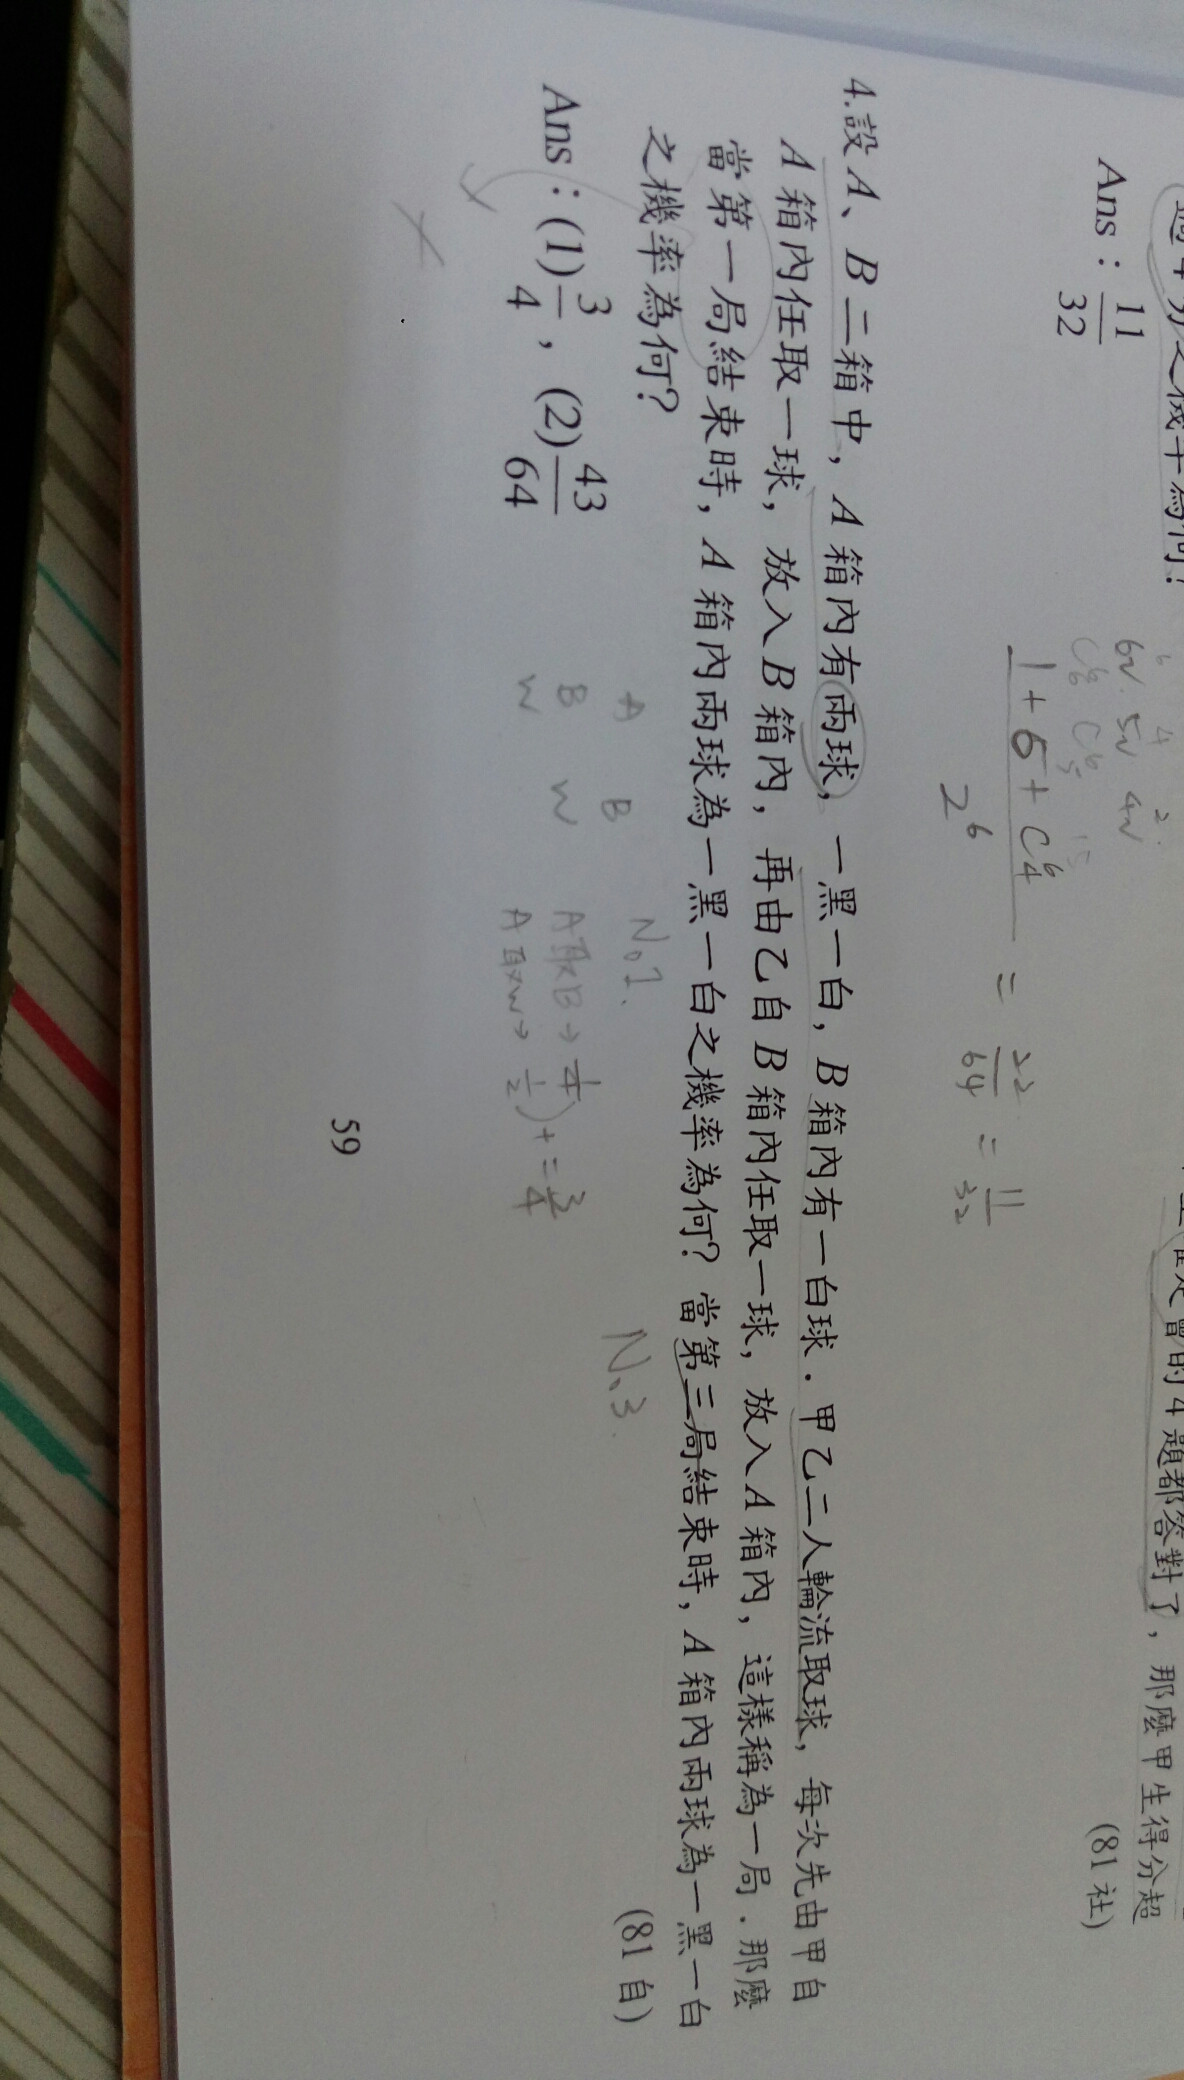 Ans：11/32
(81社)
1+6+C⁶₄ / 2⁶ = 22/64 = 11/32
4.設A、B二箱中，A箱內有兩球，一黑一白，B箱內有一白球．甲乙二人輪流取球，每次先由甲自
A箱內任取一球，放入B箱內，再由乙自B箱內任取一球，放入A箱內，這樣稱為一局．那麼
當第一局結束時，A箱內兩球為一黑一白之機率為何？當第三局結束時，A箱內兩球為一黑一白
之機率為何？
(81自)
Ans：(1)3/4，(2)43/64
A B No1. No3.
B W A取B→1/4
W A取W→1/2 )+=3/4
59